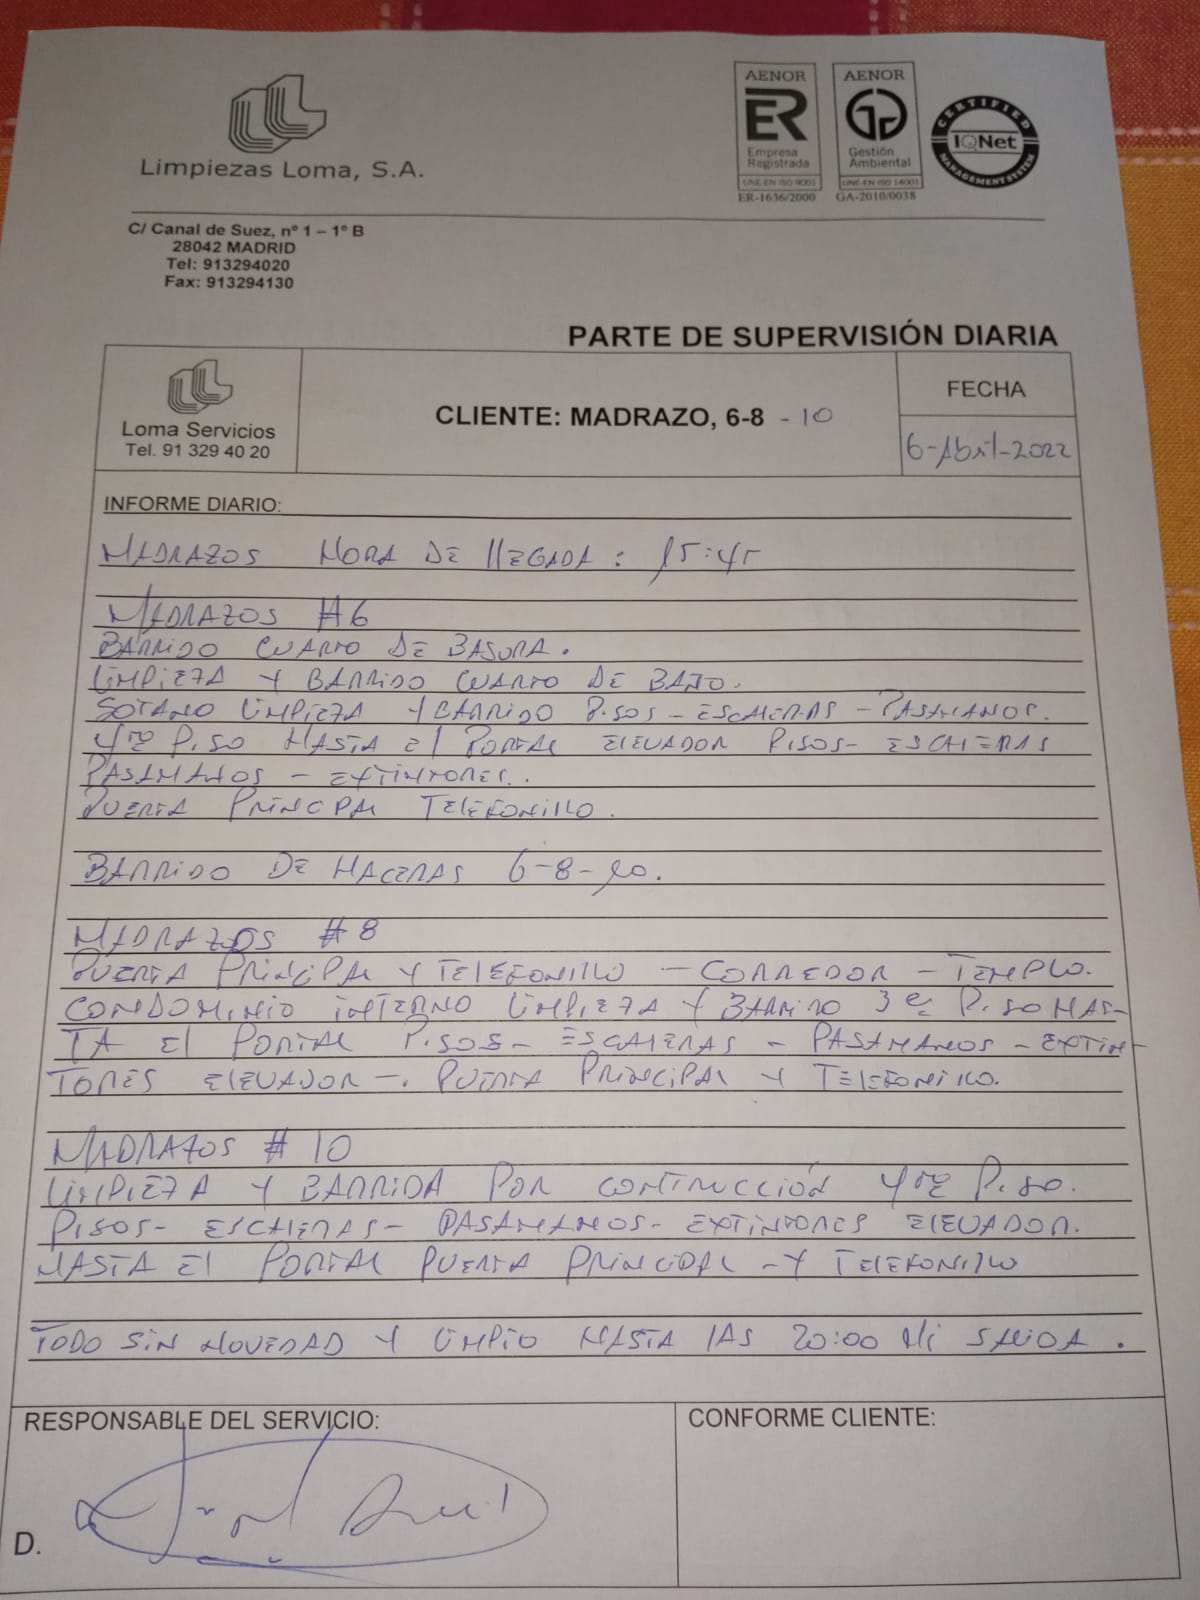 Limpiezas Loma, S.A.
AENOR
ER
Empresa
Registrada
UNE-EN ISO 9001
ER-1636/2000
AENOR
Gestión
Ambiental
UNE-EN ISO 14001
GA-2010/0038
CERTIFIED
IQNet
MANAGEMENT SYSTEM
C/ Canal de Suez, nº 1 – 1º B
28042 MADRID
Tel: 913294020
Fax: 913294130
PARTE DE SUPERVISIÓN DIARIA
Loma Servicios
Tel. 91 329 40 20
CLIENTE: MADRAZO, 6-8 - 10
FECHA
6-Abril-2022
INFORME DIARIO:
MADRAZOS HORA DE LLEGADA: 15:45
MADRAZOS #6
BARRIDO CUARTO DE BASURA.
LIMPIEZA Y BARRIDO CUARTO DE BAÑO.
SOTANO LIMPIEZA Y BARRIDO PISOS - ESCALERAS - PASAMANOS.
4to PISO HASTA El PORTAL ELEVADOR PISOS - ESCALERAS
PASAMANOS - EXTINTORES.
PUERTA PRINCIPAL TELEFONILLO.
BARRIDO DE HACERAS 6-8-10.
MADRAZOS #8
PUERTA PRINCIPAL Y TELEFONILLO - CORREDOR - TEMPLO.
CONDOMINIO INTERNO LIMPIEZA Y BARRIDO 3er PISO HAS-
TA El PORTAL PISOS - ESCALERAS - PASAMANOS - EXTIN-
TORES ELEVADOR -. PUERTA PRINCIPAL Y TELEFONILLO.
MADRAZOS # 10
LIMPIEZA Y BARRIDA POR CONTRUCCIÓN 4to PISO.
PISOS - ESCALERAS - PASAMANOS - EXTINTORES ELEVADOR.
HASTA El PORTAL PUERTA PRINCIPAL - Y TELEFONILLO
TODO SIN NOVEDAD Y LIMPIO HASTA LAS 20:00 MI SALIDA.
RESPONSABLE DEL SERVICIO:
CONFORME CLIENTE:
D.